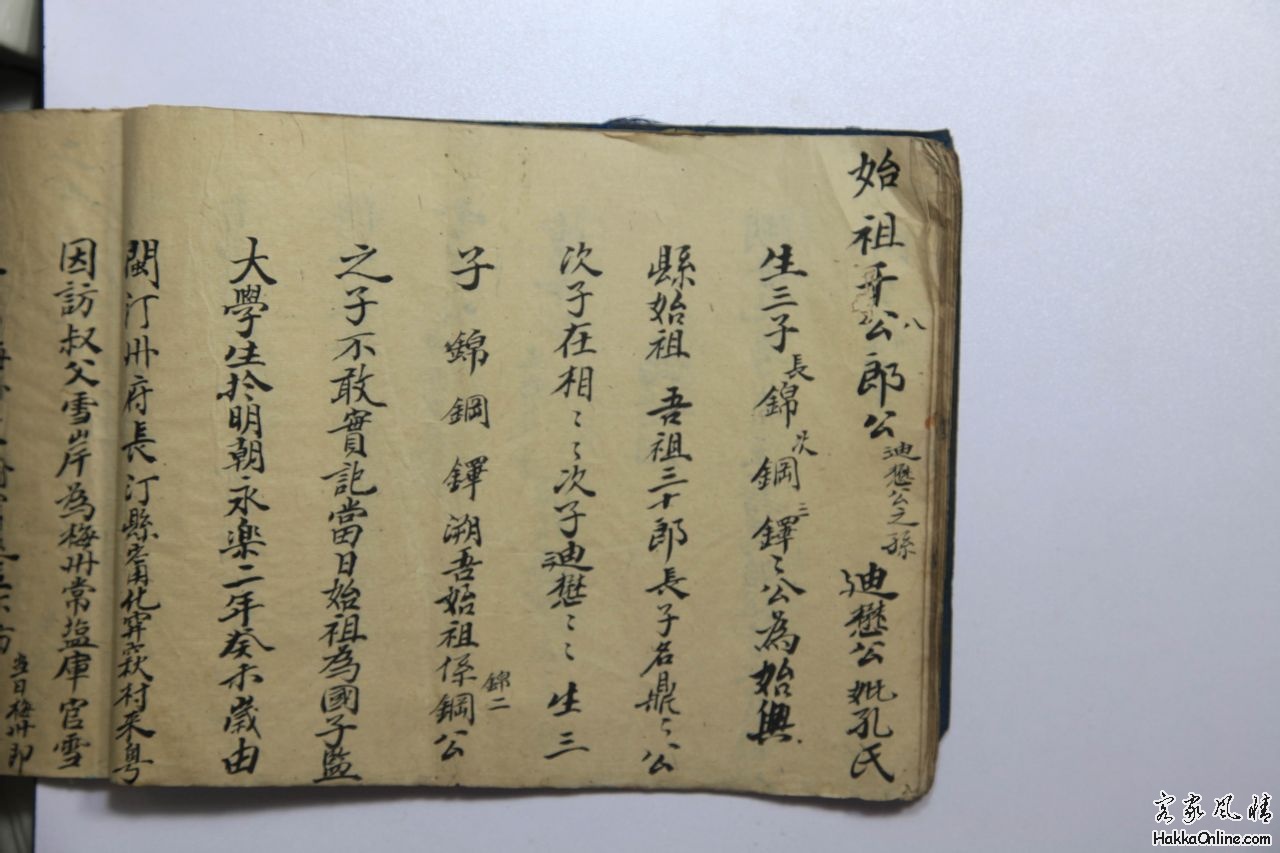 始祖千八公郎公 迪懋公之孫 迪懋公妣孔氏
生三子長錦次鋼三鐸〻公為始興
縣始祖 吾祖三十郎長子名鼎〻公
次子在相〻〻次子迪懋〻〻生三
子 錦 鋼 鐸 溯吾始祖係鋼公 錦二
之子不敢實記當日始祖為國子監
大學生於明朝永楽二年癸未歲由
閩汀州府長汀縣 秋村来粵
因訪叔父雪岸為梅州常盐庫官雪
當日梅州即
客家風情
HakkaOnline.com